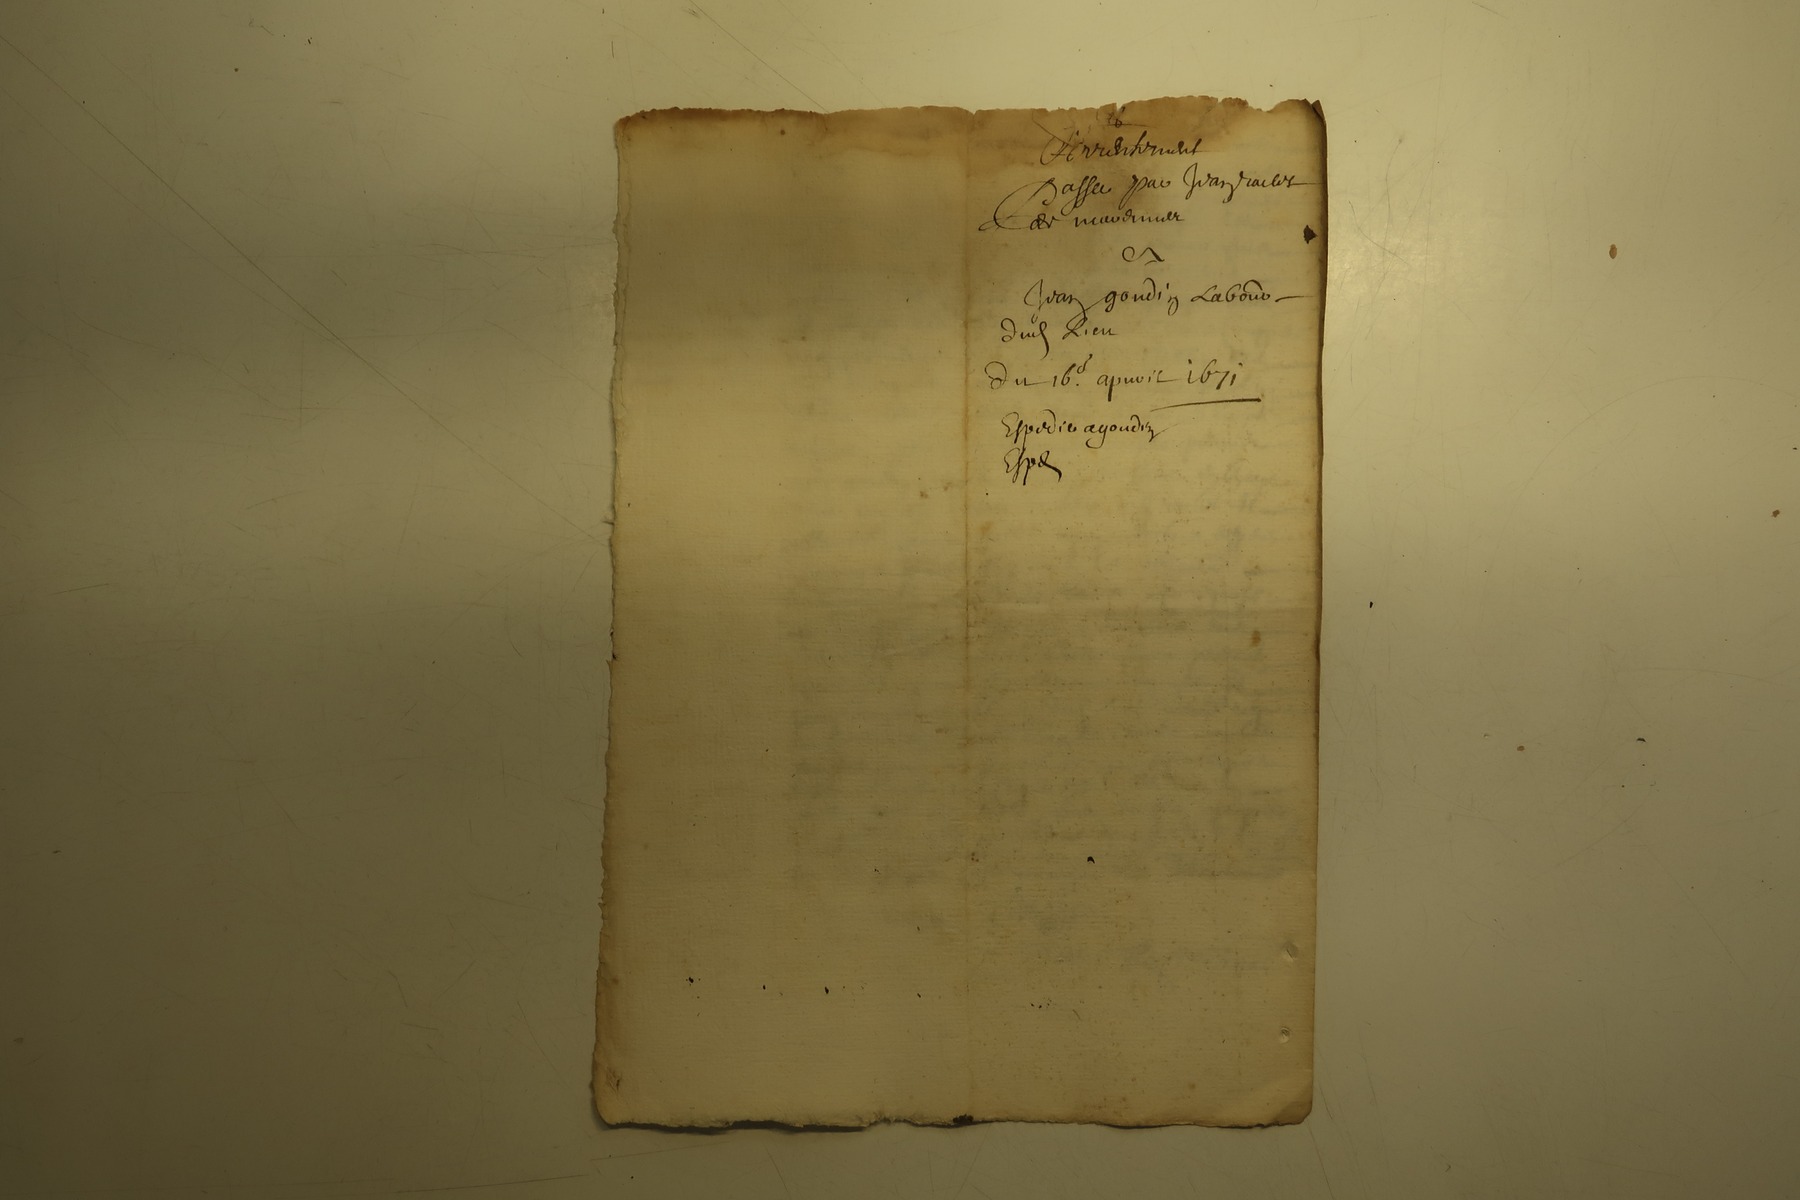 Passée par Jean
de
A
Jean goudin Labour
dud Lieu
Du 16e apvril 1671
Expedié a goudin
Exped